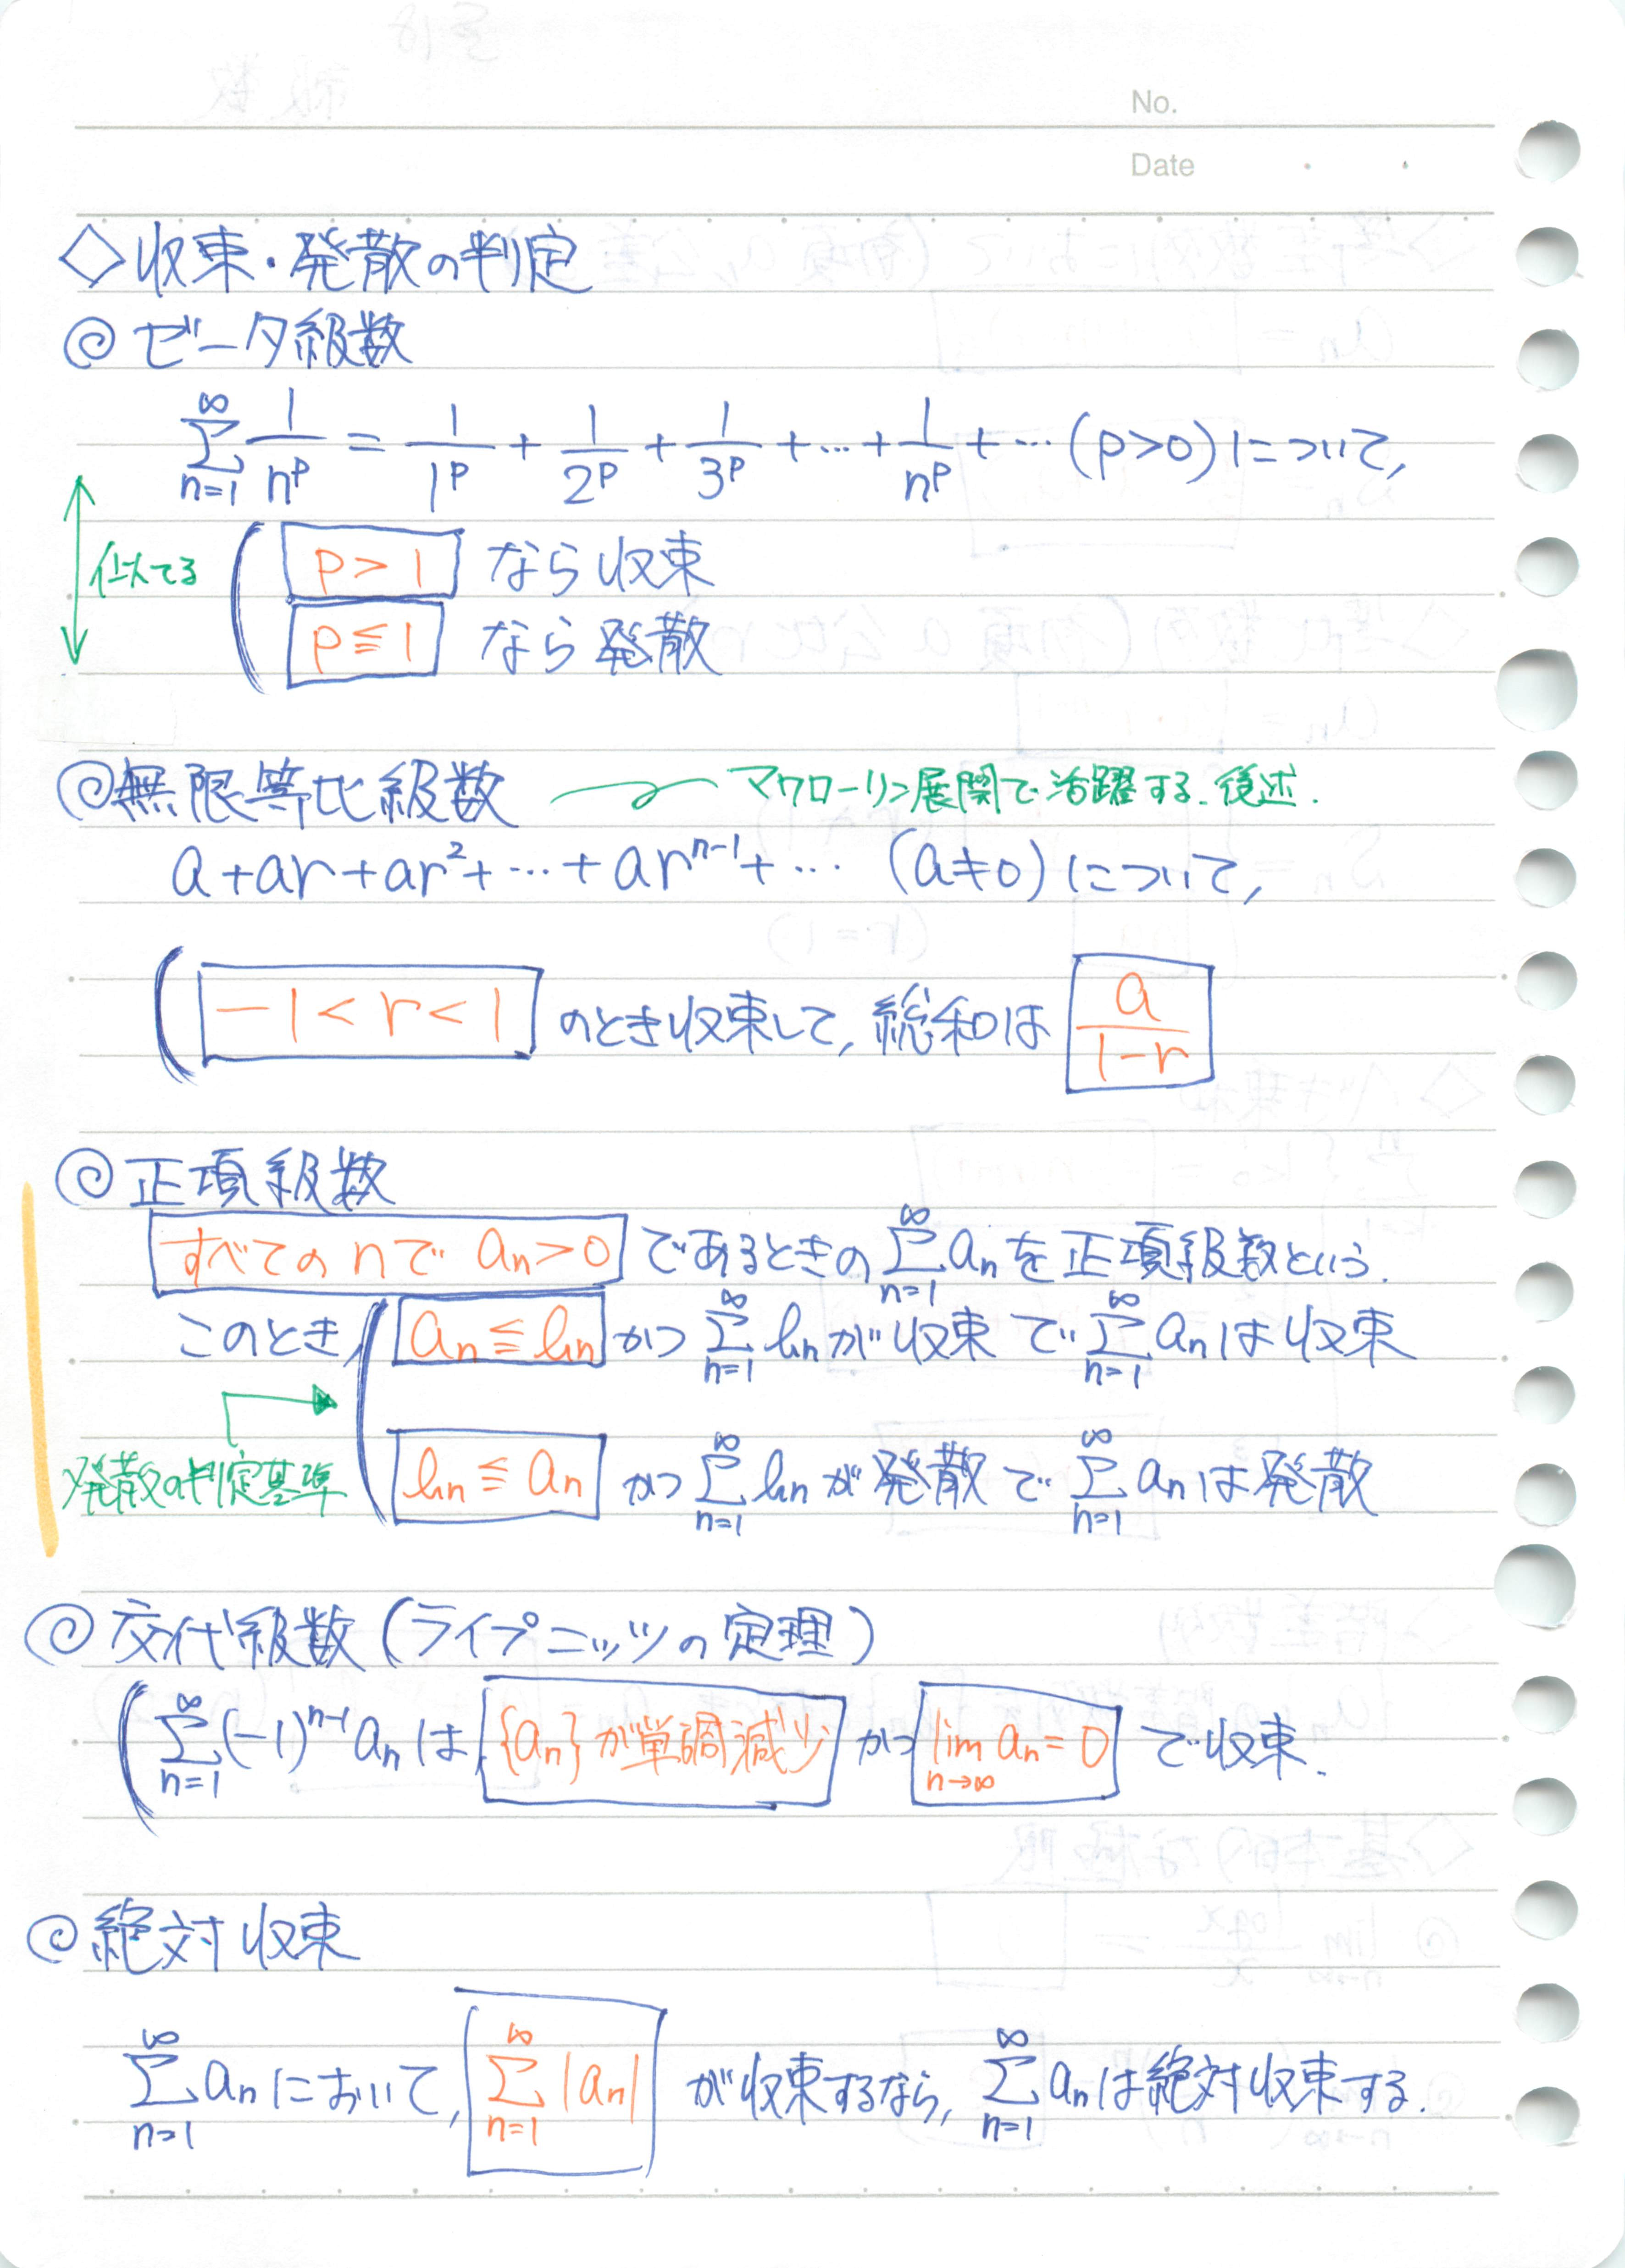 No.
Date
◇収束・発散の判定
◎ ゼータ級数
∞∑n=1 1/n^p = 1/1^p + 1/2^p + 1/3^p + … + 1/n^p + … (p>0) について,
似てる
p>1 なら収束
p≦1 なら発散
◎無限等比級数 マクローリン展開で活躍する. 後述.
a+ar+ar²+…+ar^(n-1)+… (a≠0) について,
-1<r<1 のとき収束して, 総和は a/(1-r)
◎正項級数
すべてのnで an>0 であるときの ∞∑n=1 an を正項級数という.
このとき, an≦bn かつ ∞∑n=1 bn が収束 で ∞∑n=1 an は収束
発散の判定基準 bn≦an かつ ∞∑n=1 bn が発散で ∞∑n=1 an は発散
◎ 交代級数 (ライプニッツの定理)
∞∑n=1 (-1)^(n-1) an は {an}が単調減少 かつ lim n→∞ an=0 で収束.
◎絶対収束
∞∑n=1 an において, ∞∑n=1 |an| が収束するなら, ∞∑n=1 an は絶対収束する.